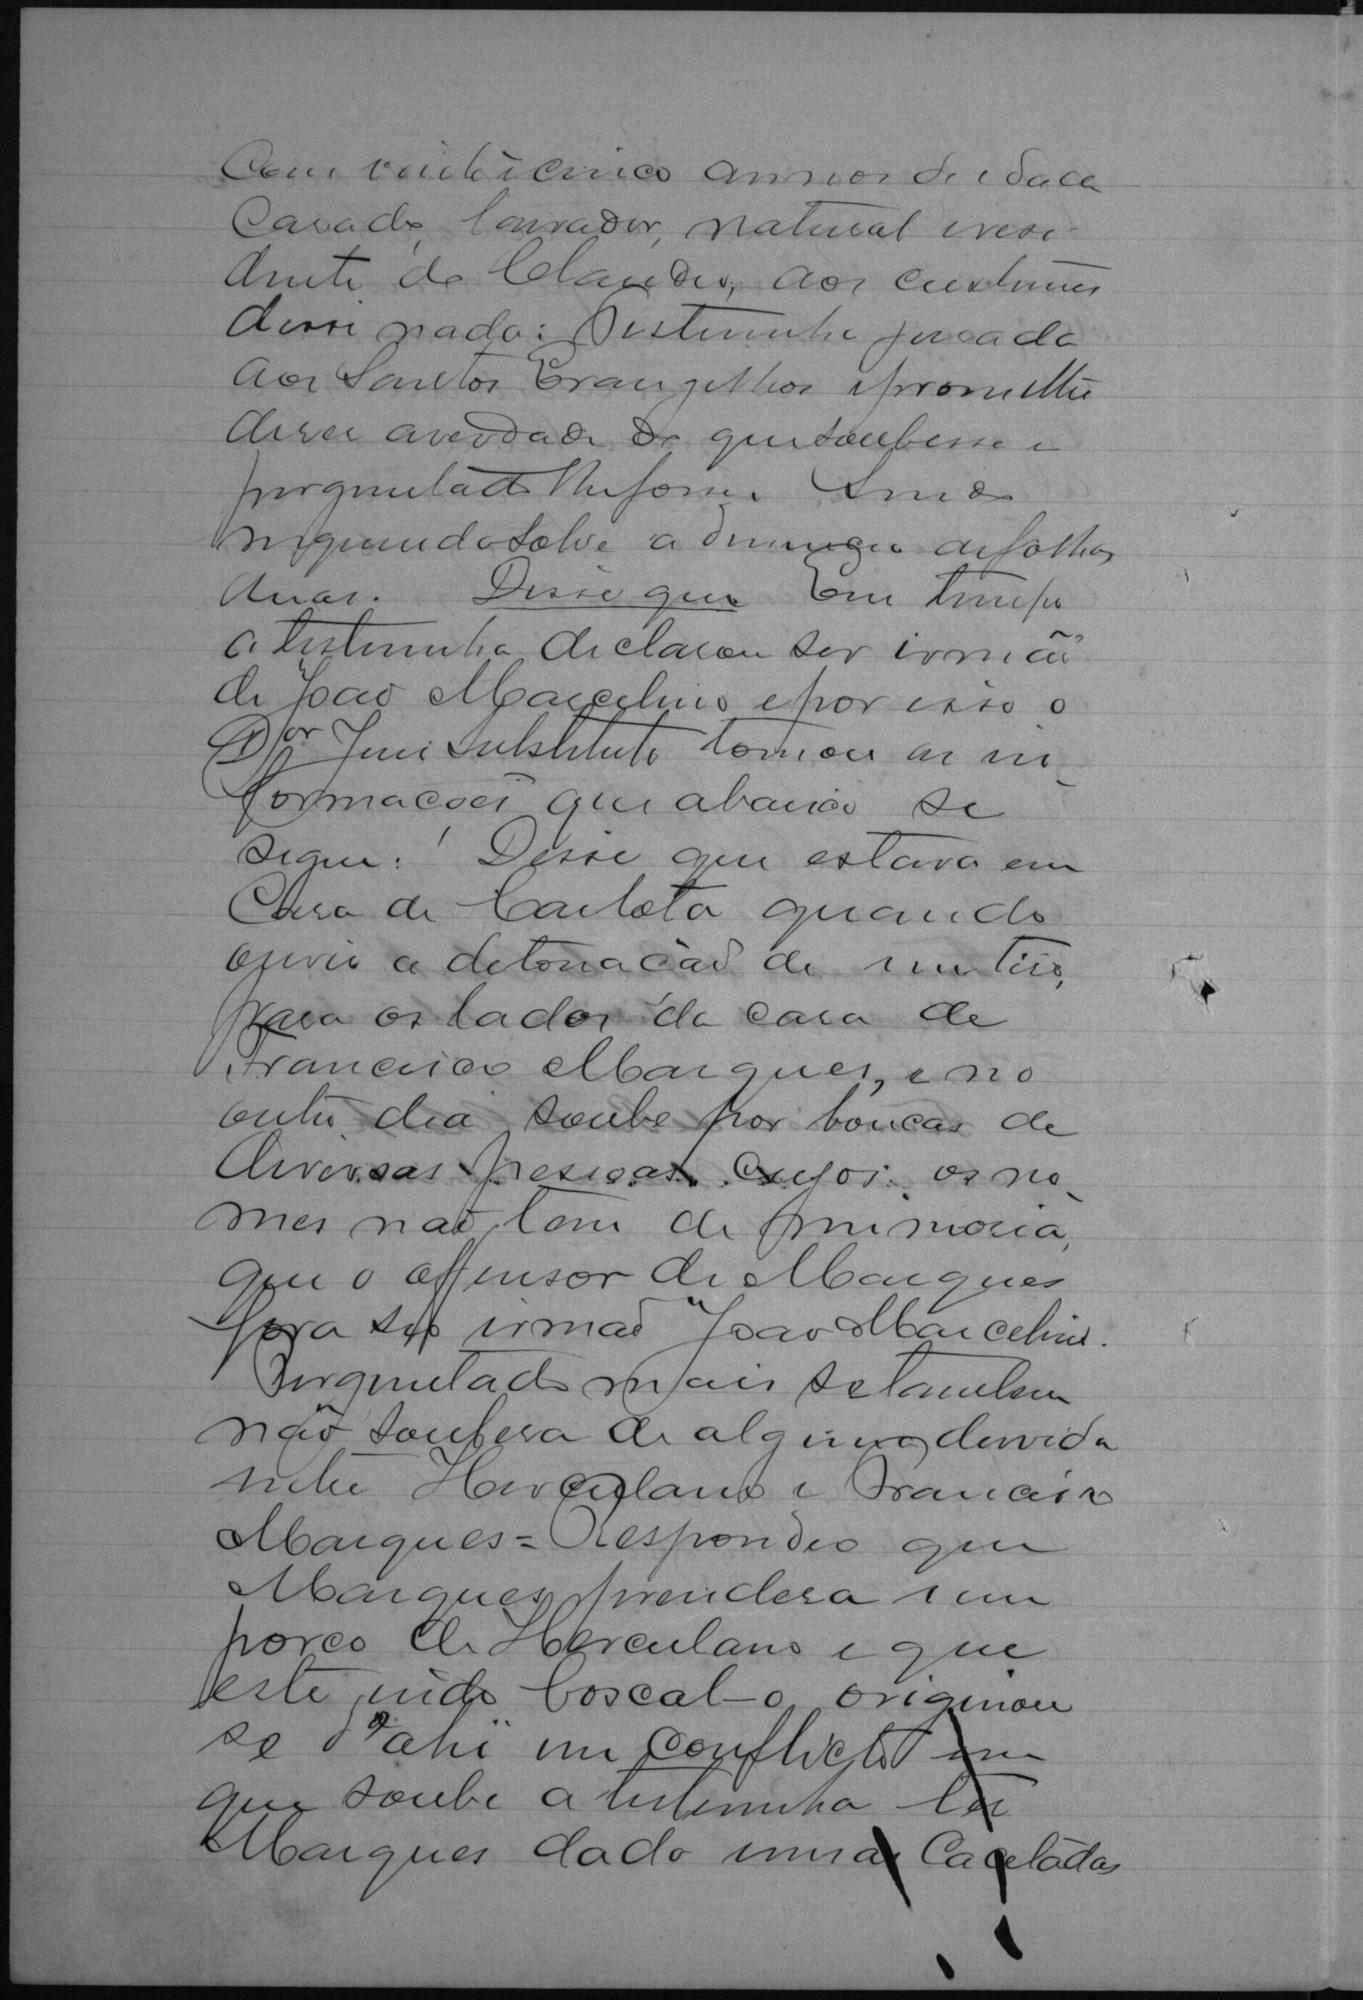 Com vinte icinco annos de idade
Casado, lavrador, natural eresi-
dente do Claudio, aos custumes
disse nada: Testemunha jurada
aos Santos Evangelhos eprometteo
diser averdade do que soubesse e
perguntado lhe fosse. Sendo
inquirido sobre a denuncia defolhas
duas. Disse que Em tempo
a testemunha declarou ser irmão
de João Marcelino epor isso o
Dor Juis Substituto tomou as in-
formações que abaixo se
segue: Disse que estava em
Casa de Carlota quando
ouvio a detonação de um tiro,
para os lados da casa de
Francisco Marques, e no
outro dia soube por boucas de
diversas pessoas cujos os no-
mes não tem de memoria,
que o offensor de Marques
fora seo irmão João Marcelino.
Perguntado mais se tambem
não soubera de alguma duvida
entre Herculano e Francisco
Marques = Respondeo que
Marques prendera um
porco de Herculano e que
este indo boscal-o originou
se d'ahi um conflicto em
que soube a testemunha ter
Marques dado umas Cacetadas